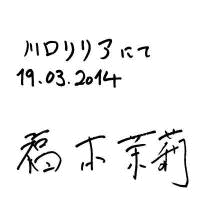 川口リリアにて
19.03.2014
福本茉莉